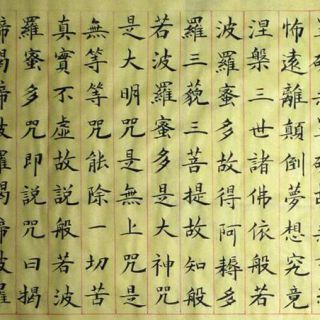 怖遠離顛倒夢想究竟
涅槃三世諸佛依般若
波羅蜜多故得阿耨多
羅三藐三菩提故知般
若波羅蜜多是大神咒
是大明咒是無上咒是
無等等咒能除一切苦
真實不虛故說般若波
羅蜜多咒即說咒曰揭
諦揭諦波羅揭諦波羅